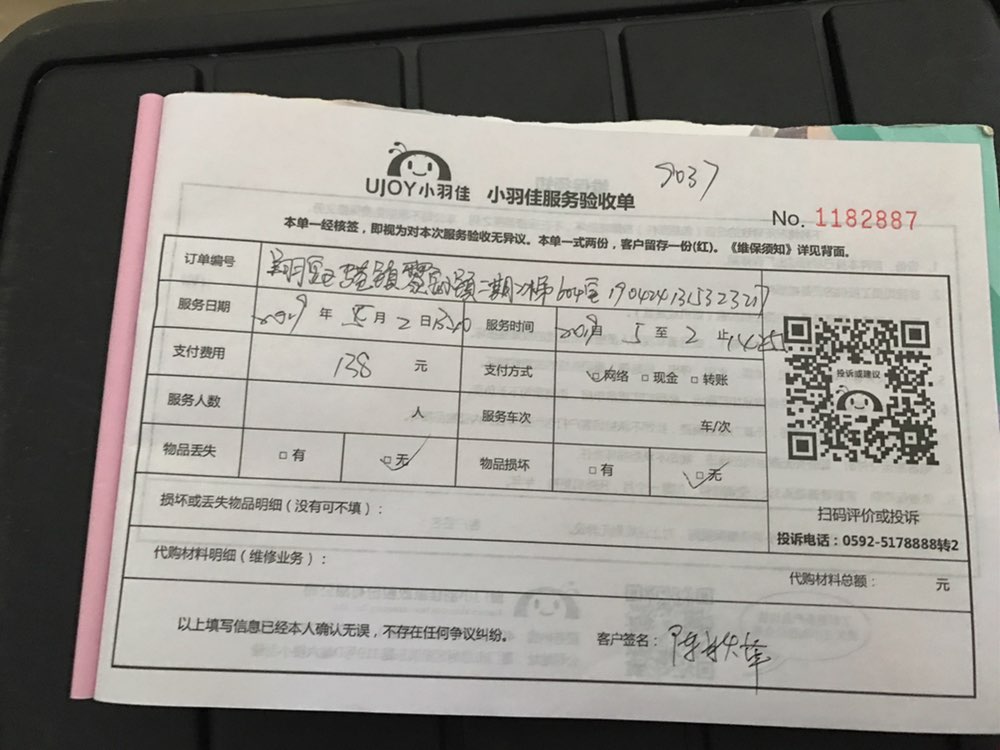 9037
UJOY小羽佳 小羽佳服务验收单
No. 1182887
本单一经核签，即视为对本次服务验收无异议。本单一式两份，客户留存一份(红)。《维保须知》详见背面。
订单编号 二期 604室 190424131532321
服务日期 2019 年 5 月 2 日 服务时间 2019 5 至 2 止
支付费用 138 元 支付方式 □网络 □现金 □转账
投诉或建议
服务人数 人 服务车次 车/次
物品丢失 □有 □无 物品损坏 □有 □无
损坏或丢失物品明细（没有可不填）：
扫码评价或投诉
投诉电话：0592-5178888转2
代购材料明细（维修业务）：
代购材料总额： 元
以上填写信息已经本人确认无误，不存在任何争议纠纷。
客户签名：